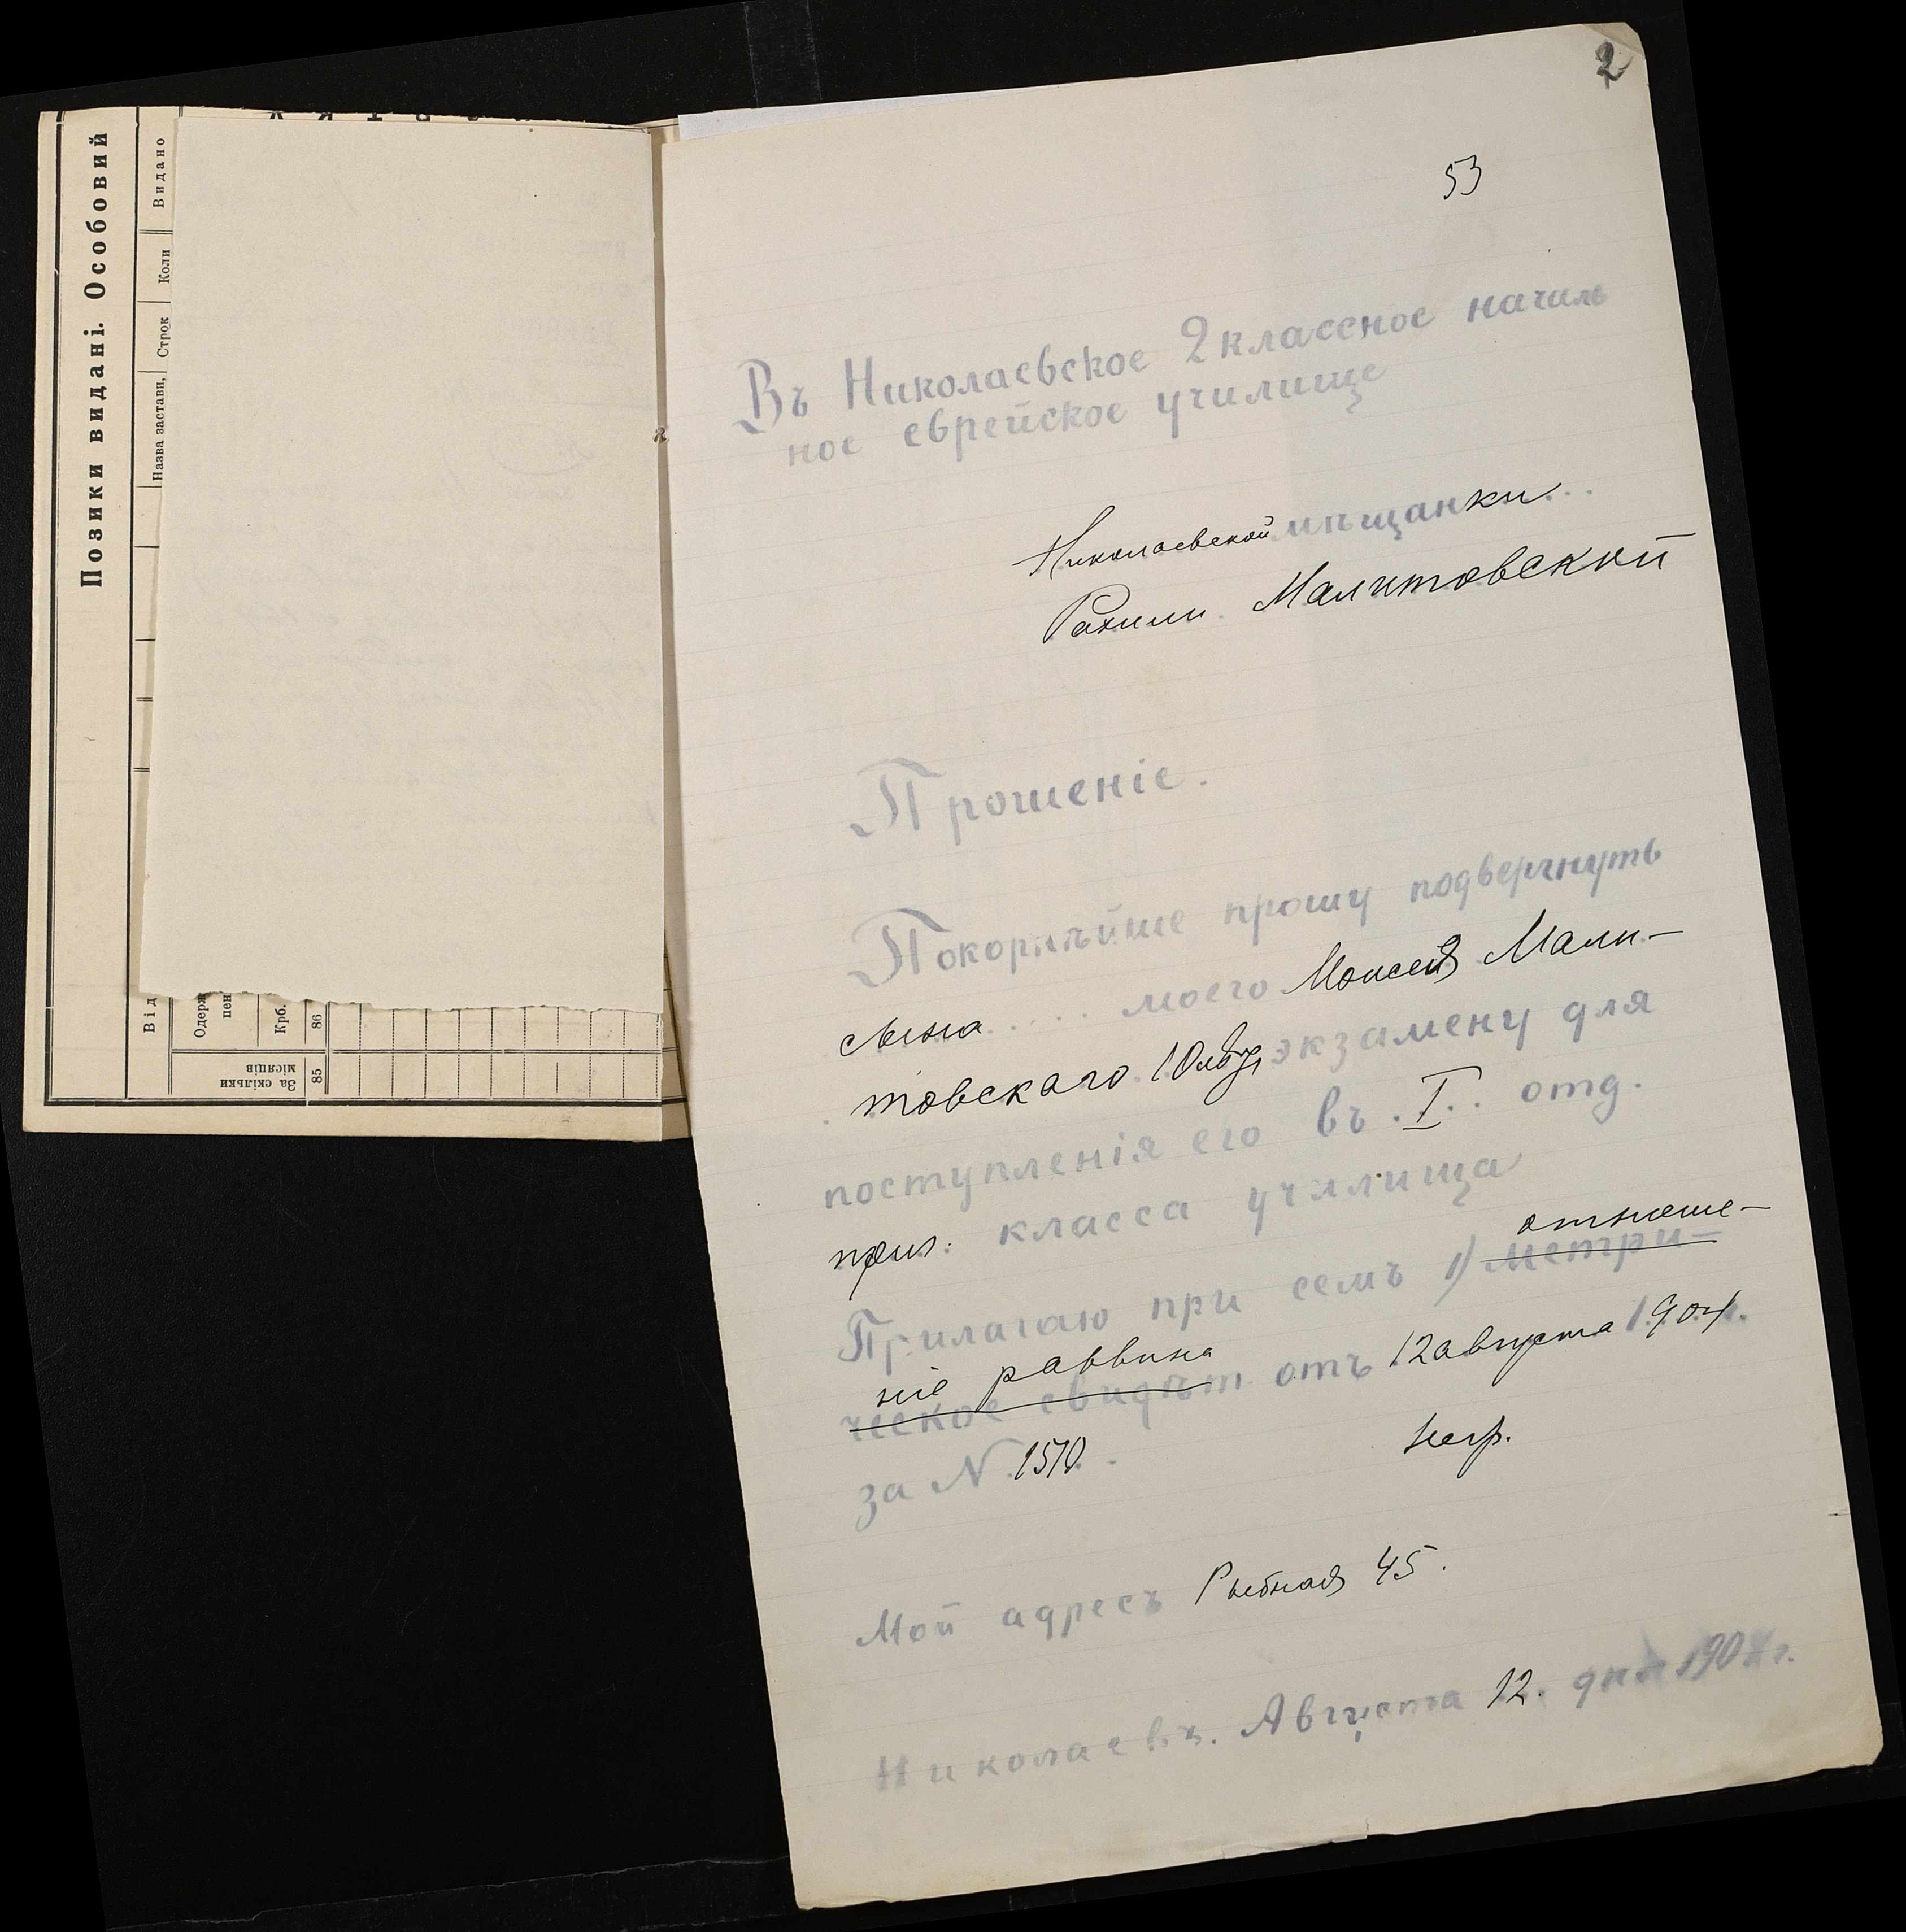 Позики видані. Особовий
Видано
Коли
Строк
Назва застави,
Від
Одерж
пен
Крб.
86
За скільки
місяців
85
2
53
Въ Николаевское 2 классное началь
ное еврейское училище
Николаевской мѣщанки...
Рахили Малитовской
Прошеніе.
Покорнѣйше прошу подвергнуть
сына..... моего Моисея Мали-
товскаго 10 лѣтъ экзамену для
поступленія его въ .I.. отд.
приг. класса училища
Прилагаю при семъ 1) метри- отноше-
ческое свидѣт ніе раввина отъ 12 августа 1904.
за N 1570.
Мой адресъ Рыбная 45.
Николаевъ. Августа 12. дня 1904 г.